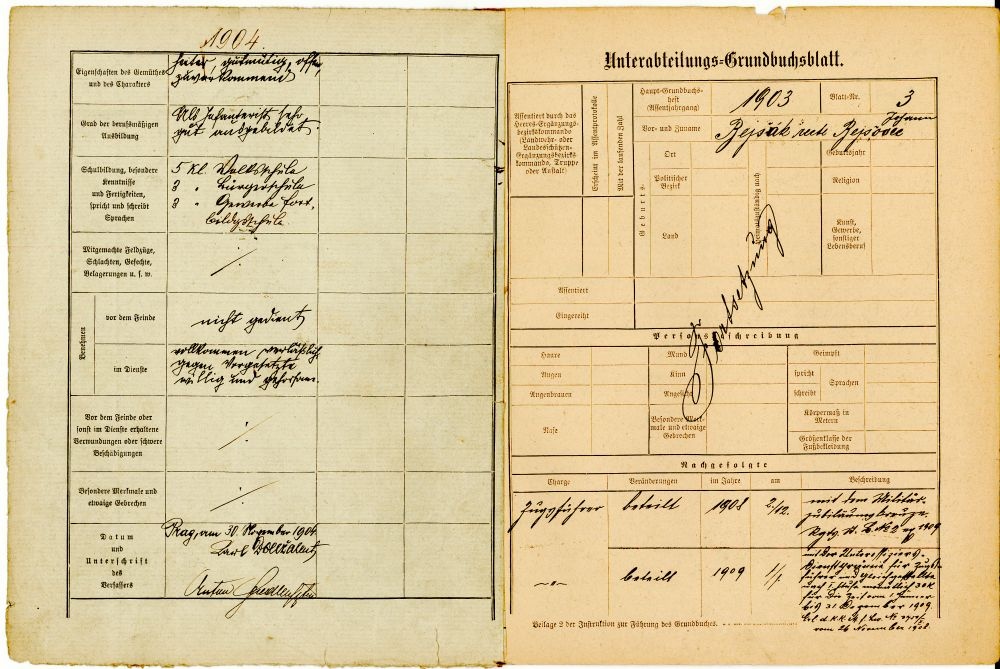 1904.
Eigenschaften des Gemüthes
und des Charakters
heiter, gutmütig, offen,
zuvorkommend
Grad der berufsmäßigen
Ausbildung
Als Infanterist sehr
gut ausgebildet.
Schulbildung, besondere
Kenntnisse
und Fertigkeiten,
spricht und schreibt
Sprachen
5 Kl. Volksschule
3 " Bürgerschule
3 " Gewerbe fort-
bildgsschule.
Mitgemachte Feldzüge,
Schlachten, Gefechte,
Belagerungen u. s. w.
Benehmen
vor dem Feinde
nicht gedient
im Dienste
vollkommen verläßlich,
gegen Vorgesetzte
willig und gehorsam.
Vor dem Feinde oder
sonst im Dienste erhaltene
Verwundungen oder schwere
Beschädigungen
Besondere Merkmale und
etwaige Gebrechen
Datum
und
Unterschrift
des
Verfassers
Prag, am 30. November 1904
Karl
Anton
Unterabteilungs-Grundbuchsblatt.
Assentiert durch das
Heeres-Ergänzungs-
bezirkskommando
(Landwehr- oder
Landesschützen-
Ergänzungsbezirks-
kommando, Truppe
oder Anstalt)
Erscheint im Assentprotokolle
Mit der laufenden Zahl
Haupt-Grundbuchs-
heft
(Assentjahrgang)
1903
Blatt-Nr.
3
Vor- und Zuname
Bejšák recte Bejšovec
Johann
Geburts-
Ort
Politischer
Bezirk
Land
Heimatszuständig nach
Geburtsjahr
Religion
Kunst,
Gewerbe,
sonstiger
Lebensberuf
Fortsetzung
Assentiert
Eingereiht
Personsbeschreibung
Haare
Augen
Augenbrauen
Nase
Mund
Kinn
Angesicht
Besondere Merk-
male und etwaige
Gebrechen
Geimpft
spricht
schreibt
Sprachen
Körpermaß in
Metern
Größenklasse der
Fußbekleidung
Nachgefolgte
Charge Veränderungen im Jahre am Beschreibung
Zugsführer beteilt 1908 2./12. mit dem Militär-
jubiläumskreuze.
№ 2 1909
beteilt 1909 1/1 mit der Unteroffiziers-
Dienstprämie für Zugs-
führer und Gleichgestellte
nach I. Stufe monatlich 30 K
für die Zeit vom 1. Jänner
bis 31. Dezember 1909.
vom 26. November 1908.
Beilage 2 der Instruktion zur Führung des Grundbuches.